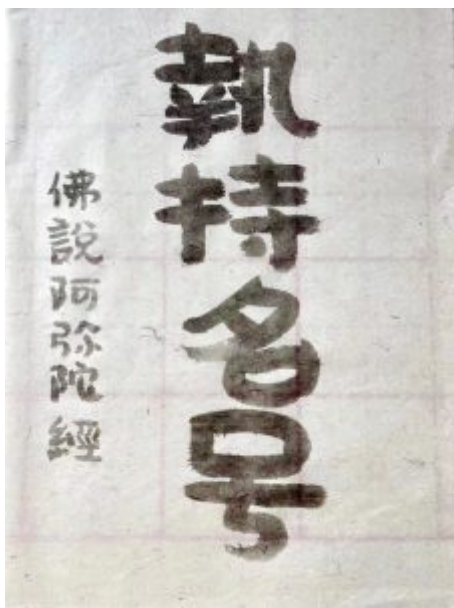 執持名号
佛說阿弥陀經